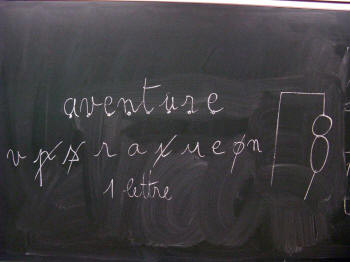 aventure
v p s r a x u e o n
1 lettre